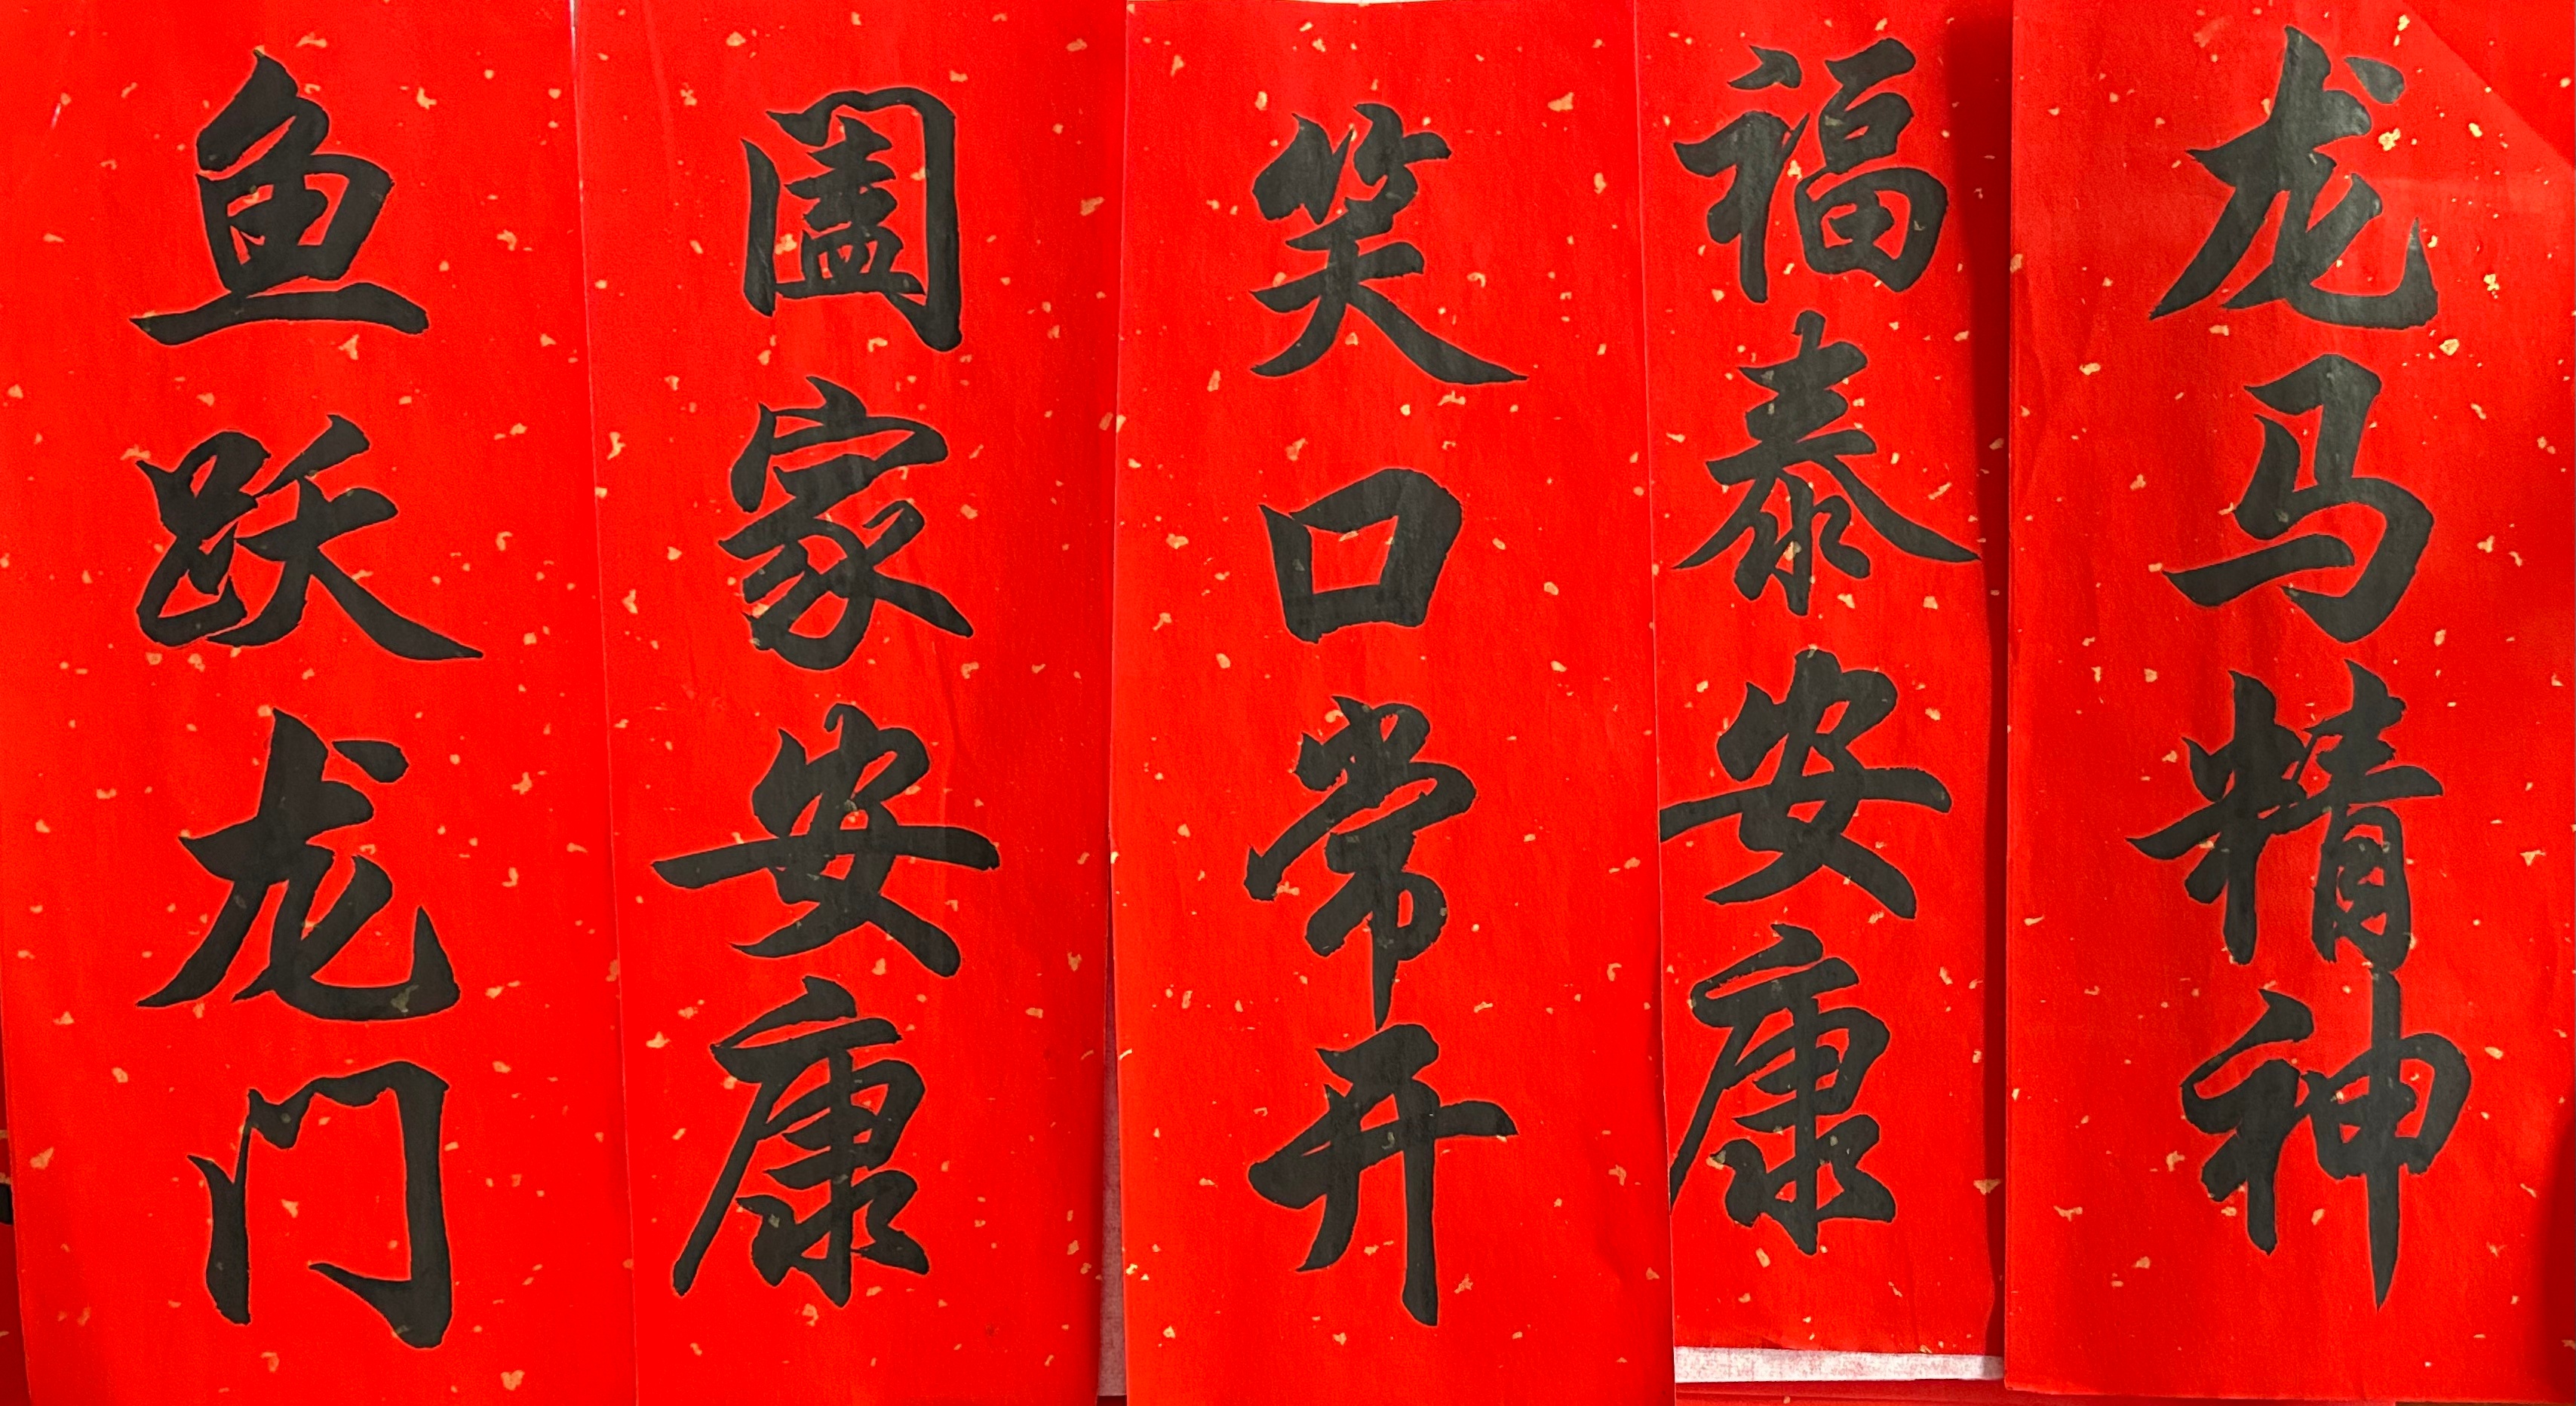 龙马精神
福泰安康
笑口常开
阖家安康
鱼跃龙门